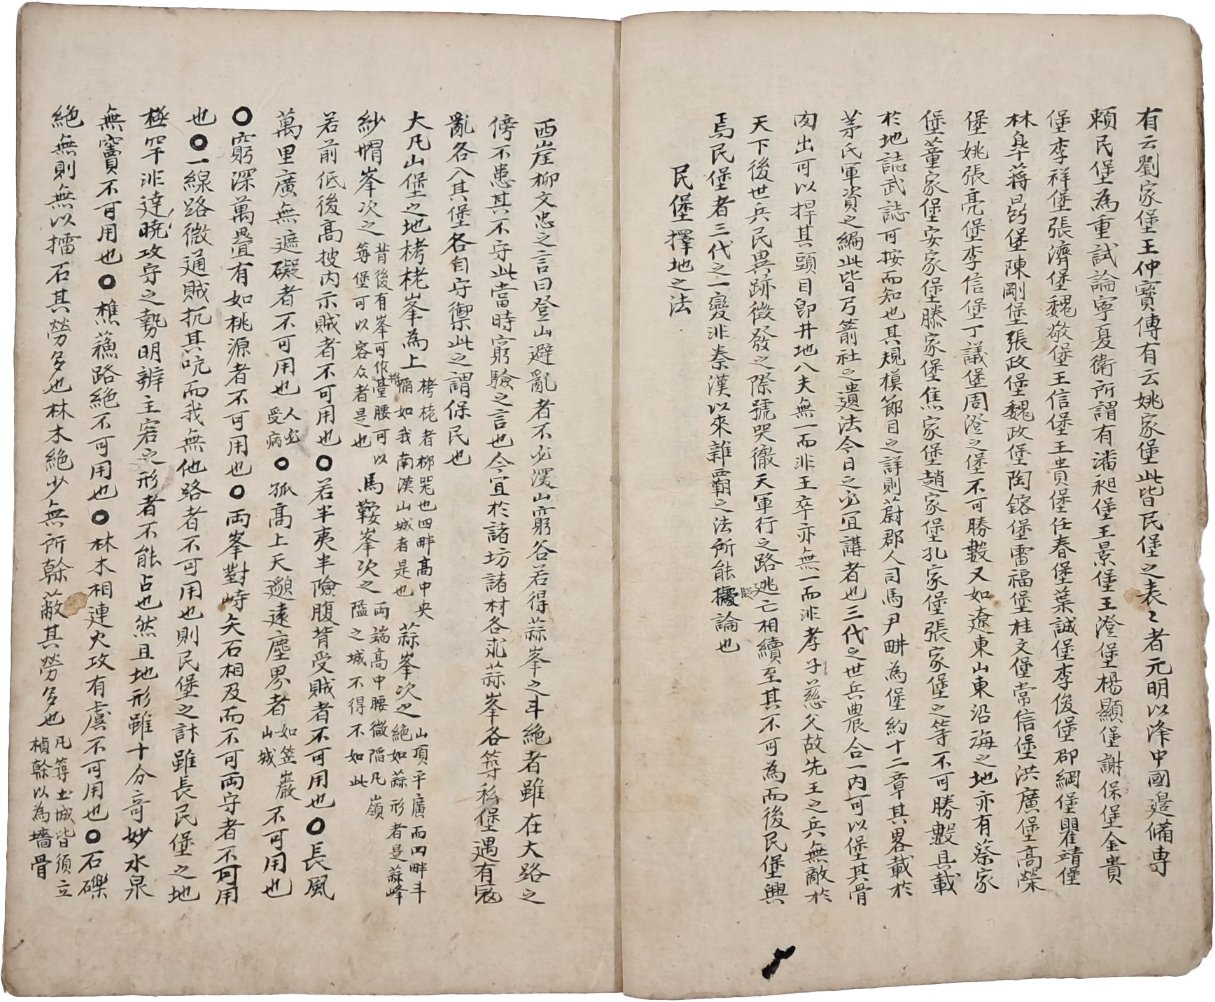 有云劉家堡王仲寶傳有云姚家堡此皆民堡之表〻者元明以洚中國邉俻専
頼民堡為重試論寧夏衛所謂有潘昶堡王景堡王澄堡楊顯堡謝保堡金貴
堡李祥堡張濟堡魏敬堡王信堡王貴堡任春堡葉誠堡李俊堡郡綱堡瞿靖堡
林皐蔣㫒堡陳剛堡張政堡魏政堡陶鎔堡雷福堡桂文堡常信堡洪廣堡高榮
堡姚張亮堡李信堡丁議堡周澄之堡不可勝數又如遼東山東沿海之地亦有蔡家
堡董家堡安家堡滕家堡焦家堡趙家堡孔家堡張家堡之等不可勝數具載
於地誌武誌可按而知也其規模節目之詳則蔚郡人司馬尹畊為堡約十二章其畧載於
茅氏軍資之編此皆弓箭社之遺法今日之必冝講者也三代之世兵農合一内可以堡其骨
肉出可以捍其頭目卽井地八夫無一而非王卒亦無一而非孝子慈父故先王之兵無敵於
天下後世兵民異跡徵發之際號哭徹天軍行之路逃亡相續至其不可為而後民堡興
焉民堡者三代之一變非秦漢以來雜霸之法所能擬論也
民堡擇地之法
西崖柳文忠之言曰登山避亂者不必深山窮谷若得蒜峯之斗絶者雖在大路之
傍不患其不守此當時窮驗之言也今宜於諸坊諸村各求蒜峯各等私堡遇有寇
亂各入其堡各自守禦此之謂保民也
大凡山堡之地栲栳峯為上 栲栳者柳筦也四畔高中央
惼如我南漢山城者是也 蒜峯次之 山頂平廣而四畔斗
絶如蒜形者是蒜峰
紗帽峯次之 背後有峯可作將臺腰可以
等堡可以容众者是也 馬鞍峯次之 兩端高中腰微陷凡嶺
隘之城不得不如此
若前低後高披内示賊者不可用也〇若半夷半險腹背受賊者不可用也〇長風
萬里廣無遮礙者不可用也 人必
受病 〇孤高上天遡遠塵界者 如笠巖
山城 不可用也
〇窮深萬疊有如桃源者不可用也〇兩峯對峙矢石相及而不可両守者不可用
也〇一線路微通賊扼其吭而我無他路者不可用也則民堡之計雖長民堡之地
極罕非達曉攻守之勢明辨主客之形者不能占也然且地形雖十分奇妙水泉
無竇不可用也〇樵蘓路絶不可用也〇林木相連火攻有虞不可用也〇石礫
絶無則無以擂石其勞多也林木絶少無所榦蔽其勞多也 凡等土城皆須立
楨榦以為墻骨